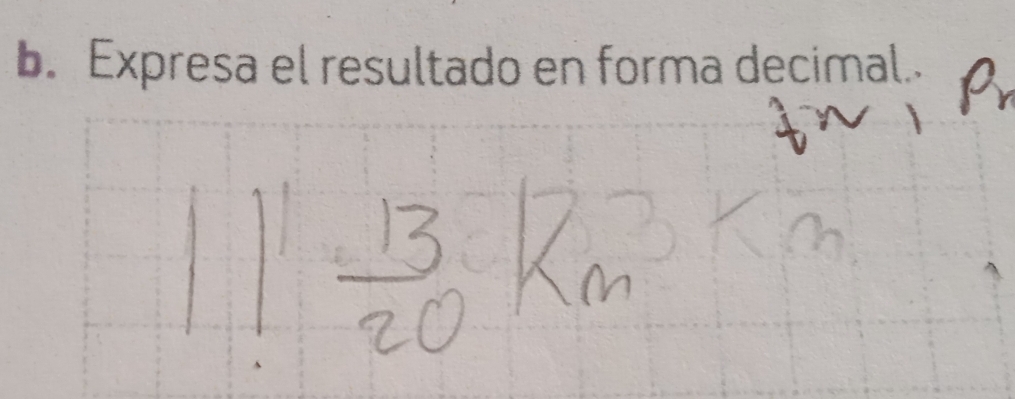 b. Expresa el resultado en forma decimal.
11 13/20 Km